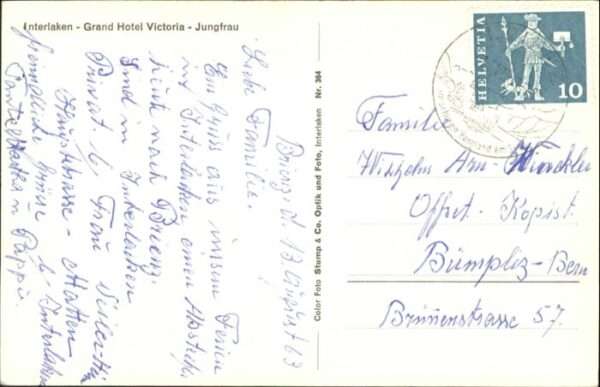 Interlaken - Grand Hotel Victoria - Jungfrau
Brienz, d. 13 August 63
Liebe Familie.
Ein Gruss aus unsern Ferien
in Interlaken einen Abstecher
nach Brienz.
Sind in Interlaken
Privat. b. Frau
Hauptstrasse - Matten
b. Interlaken
Freundliche Grüsse
Pappi.
Color Foto Stump & Co. Optik und Foto, Interlaken Nr. 364
HELVETIA
10
Familie
Arn - Winckler
Offset. Kopist.
Bümpliz - Bern
Brünnenstrasse 57.